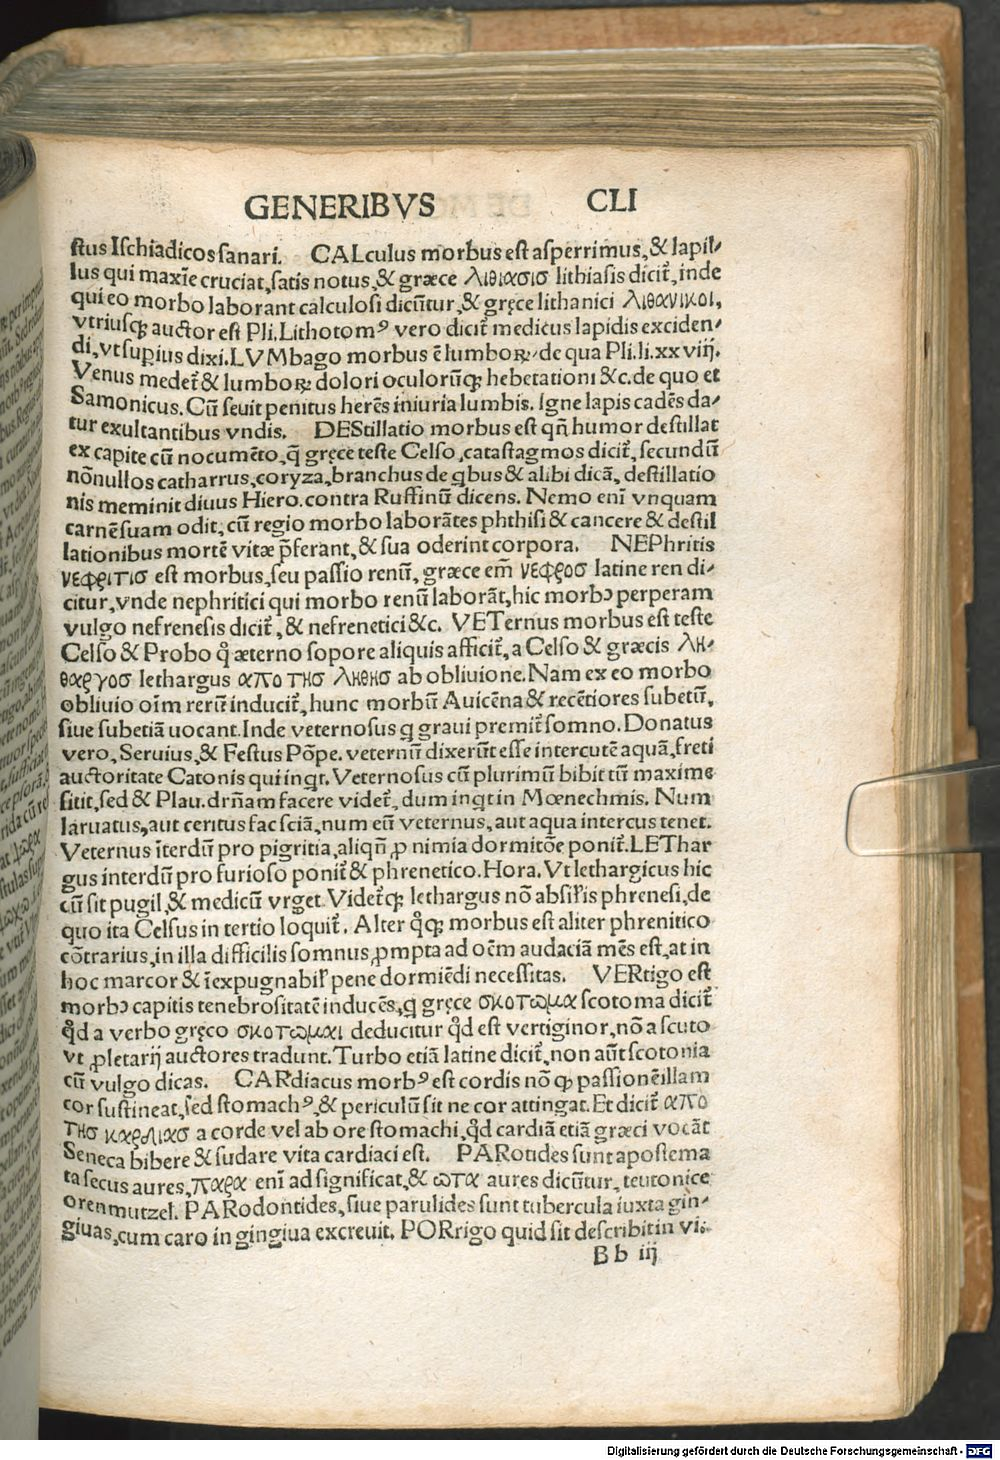 GENERIBVS CLI
ſtus Iſchiadicos ſanari. CALculus morbus eſt aſperrimus, & lapil⸗
lus qui maxīe cruciat, ſatis notus, & græce λιθιασισ lithiaſis dicit᷑, inde
qui eo morbo laborant calculoſi dicūtur, & gręce lithanici λιθανικοι,
vtriuſq; auctor eſt Pli. Lithotomꝰ vero dicit᷑ medicus lapidis exciden⸗
di, vt ſupius dixi. LVMbago morbus ē lumboꝝ, de qua Pli. li. xxviij.
Venus medet᷑ & lumboꝝ dolori oculorūq; hebetationi &c. de quo et
Samonicus. Cū ſeuit penitus herēs iniuria lumbis. Igne lapis cadēs da⸗
tur exultantibus vndis. DEStillatio morbus eſt qn̄ humor deſtillat
ex capite cū nocumēto, q̄ gręce teſte Celſo, cataſtagmos dicit᷑, ſecundū
nōnullos catharrus, coryza, branchus de qbus & alibi dicā, deſtillatio
nis meminit diuus Hiero. contra Ruffinū dicens. Nemo enī vnquam
carnē ſuam odit, cū regio morbo laborātes phthiſi & cancere & deſtil
lationibus mortē vitæ p̄ferant, & ſua oderint corpora. NEPhritis
νεφριτισ eſt morbus, ſeu paſſio renū, græce em̄ νεφροσ latine ren di⸗
citur, vnde nephritici qui morbo renū laborāt, hic morbꝰ perperam
vulgo nefreneſis dicit᷑, & nefrenetici &c. VETernus morbus eſt teſte
Celſo & Probo q̄ æterno ſopore aliquis afficit᷑, a Celſo & græcis λη⸗
θαργοσ lethargus απο τησ ληθησ ab obliuione. Nam ex eo morbo
obliuio oīm rerū inducit᷑, hunc morbū Auicēna & recētiores ſubetū,
ſiue ſubetiā uocant. Inde veternoſus q graui premit᷑ ſomno. Donatus
vero, Seruius, & Feſtus Pōpe. veternū dixerūt eſſe intercutē aquā, freti
auctoritate Catonis qui inqt. Veternoſus cū plurimū bibit tū maxime
ſitit, ſed & Plau. drn̄am facere videt᷑, dum inqt in Mœnechmis. Num
laruatus, aut ceritus fac ſciā, num eū veternus, aut aqua intercus tenet.
Veternus īterdū pro pigritia, aliqn̄ ꝓ nimia dormitōe ponit᷑. LEThar
gus interdū pro furioſo ponit᷑ & phrenetico. Hora. Vt lethargicus hic
cū ſit pugil, & medicū vrget. Videt᷑q; lethargus nō abſil̄is phreneſi, de
quo ita Celſus in tertio loquit᷑. Alter q̄q; morbus eſt aliter phrenitico
cōtrarius, in illa difficilis ſomnus, ꝓmpta ad oēm audaciā mēs eſt, at in
hoc marcor & īexpugnabil̄ pene dormiēdi neceſſitas. VERtigo eſt
morbꝰ capitis tenebroſitatē inducēs, q gręce σκοτωμα ſcotoma dicit᷑
q̄d a verbo gręco σκοτωμαι deducitur q̄d eſt vertiginor, nō a ſcuto
vt ꝓletarij auctores tradunt. Turbo etiā latine dicit᷑, non aūt ſcotonia
cū vulgo dicas. CARdiacus morbꝰ eſt cordis nō ꝙ paſſionē illam
cor ſuſtineat, ſed ſtomachꝰ, & periculū ſit ne cor attingat. Et dicit᷑ απο
τησ καρδιασ a corde vel ab ore ſtomachi, q̄d cardiā etiā græci vocāt
Seneca bibere & ſudare vita cardiaci eſt. PARotides ſunt apoſtema
ta ſecus aures, παρα enī ad ſignificat, & ωτα aures dicūtur, teutonice
orenmutzel. PARodontides, ſiue parulides ſunt tubercula iuxta gin⸗
giuas, cum caro in gingiua excreuit. PORrigo quid ſit deſcribit in vi.
B b iij
Digitalisierung gefördert durch die Deutsche Forschungsgemeinschaft - DFG